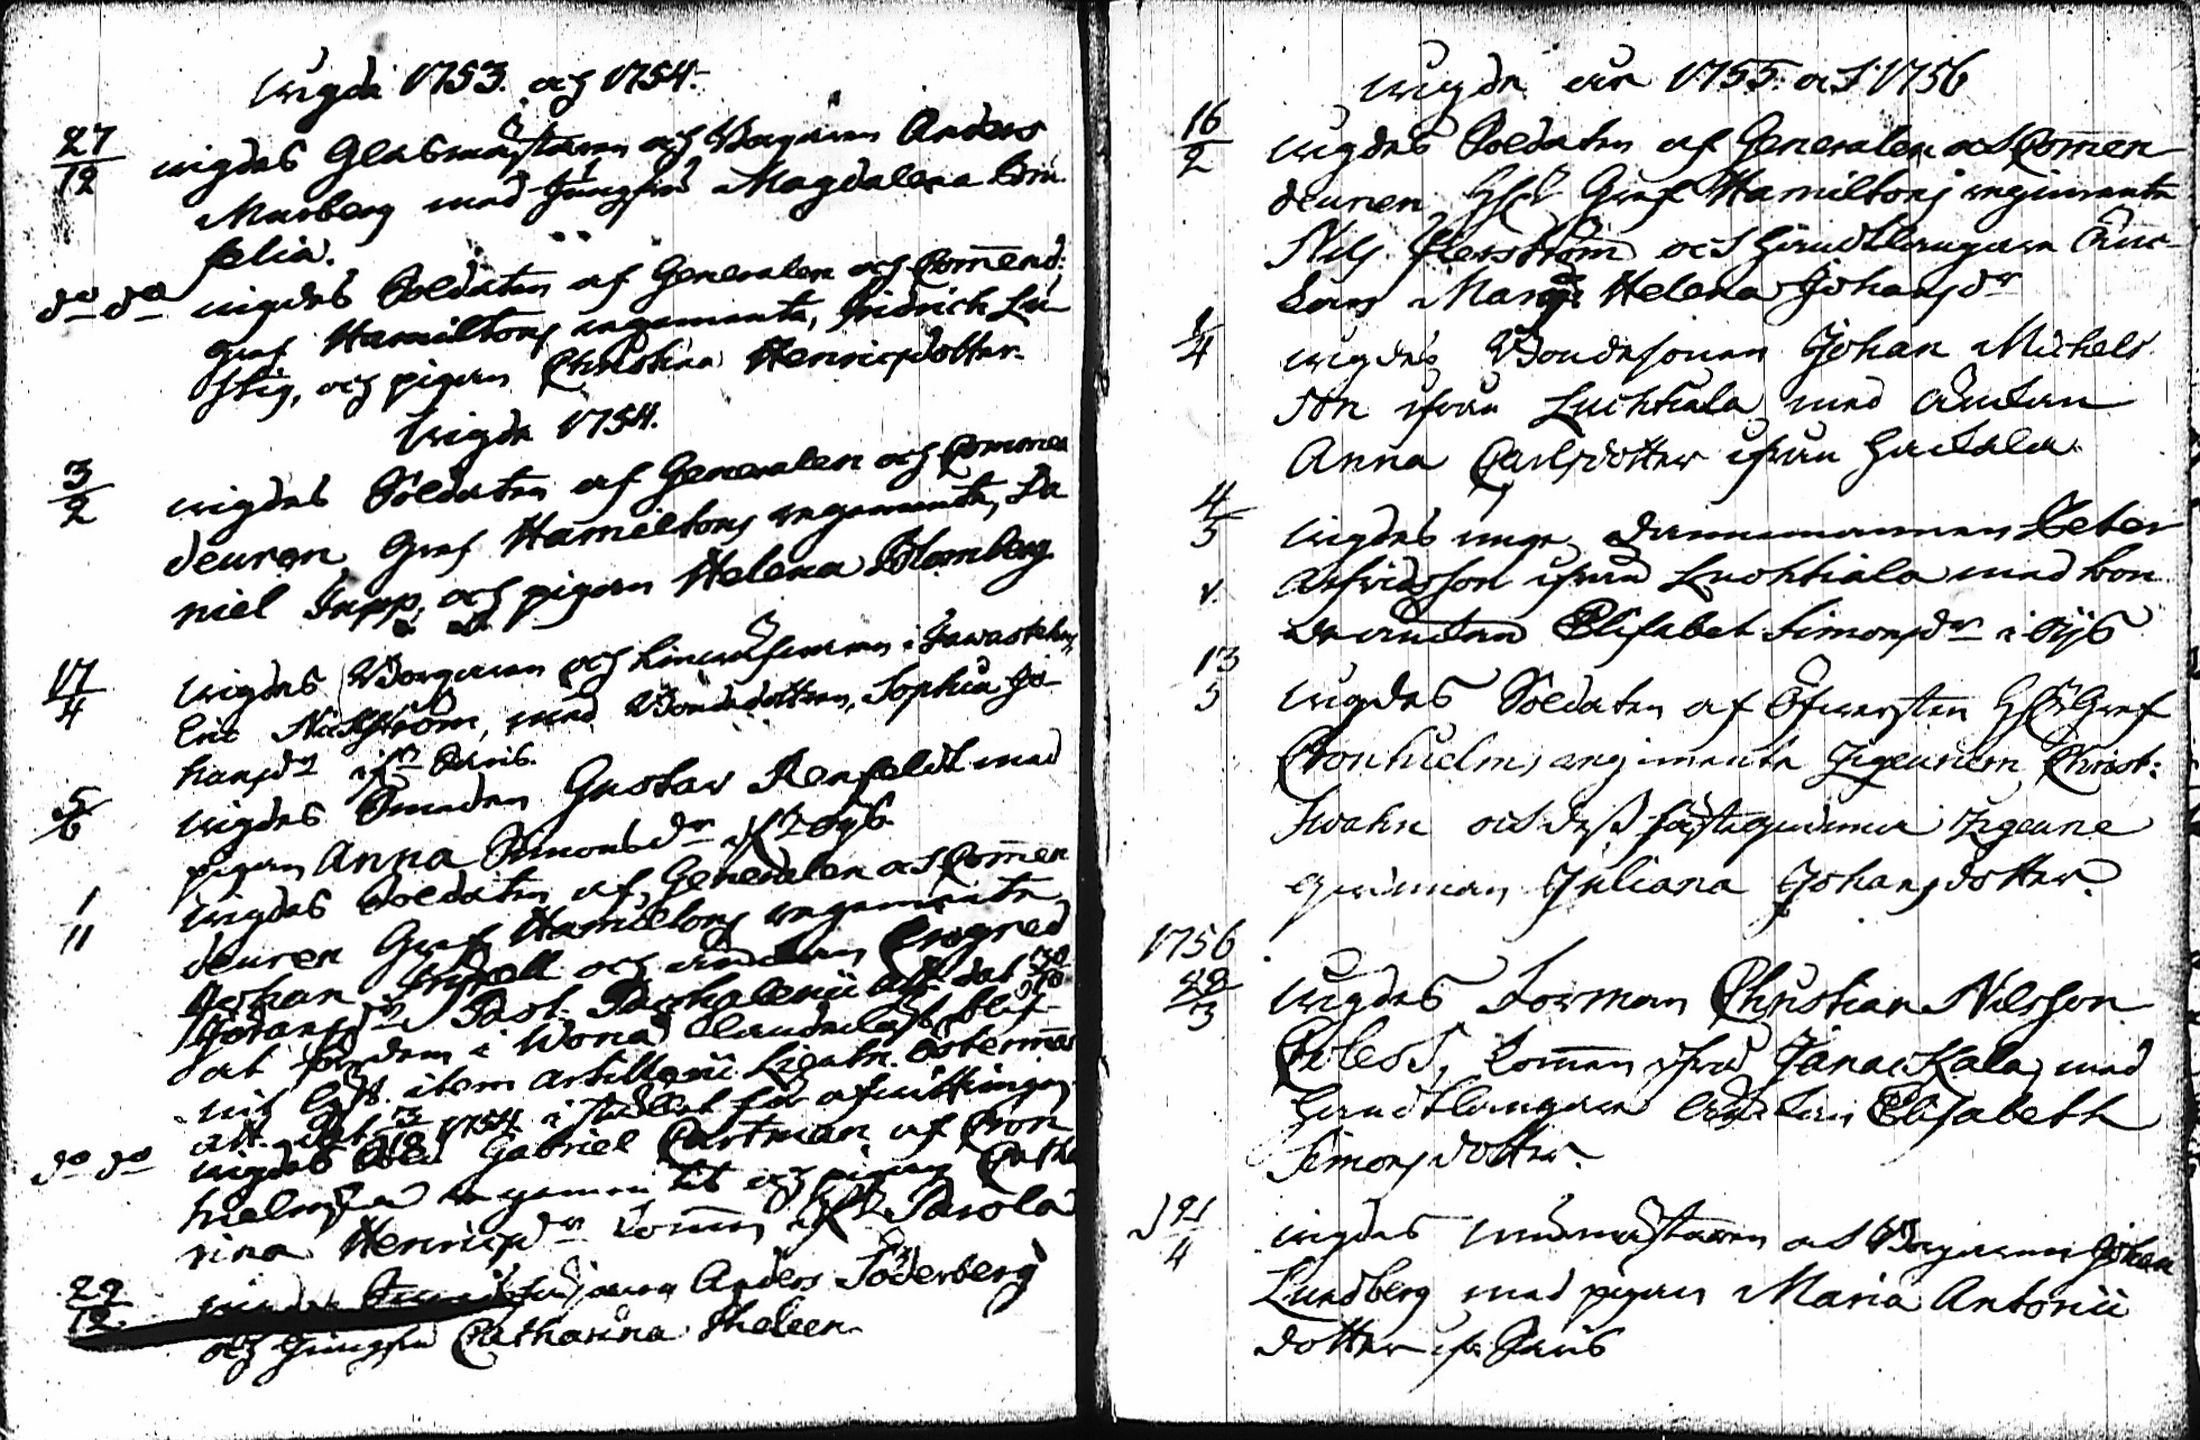 wigde 1753. och 1754.
27/12 wigdes Glasmästaren och Borgaren Anders
Marberg med Jungfru Magdalena Cor-
felia.
do do wigdes Soldaten af Generalen och Comend:
Graf Hamiltons regemente, Fridrich Lu-
stig, och pigan Christina Henricsdotter.
Wigde 1754.
3/2 wigdes Soldaten af Generalen och Commen
deuren Graf Hamiltons regemente, Da
niel Trapp, och pigan Helena Blomberg
17/4 wigdes Borgaren och i Tawastehus
Eric Nästström, med Bondedottren, Sophia Jo-
hansdr ifr. Säris.
5/6 wigdes Smeden Gustav Renfeldt med
pigan Anna Simonsdr ifr. Öijs
1/11 wigdes Soldaten af Generalen och Comen
deuren Graf Hamiltons regemente
Johan och änckan Ingred
Johansdr Past. att. dat. 30/10
at för dem i Wånå blif-
wit lyst. item Artillerie Lieutn.
att. dat. 1754 i stället för
do do wigdes Sold. Gabriel Cartman af Cron
hielmska regementet och pigan Catha
rina Henricsdr kommen ifr. Parola
29/12 Anders Söderberg
och Jungfru Catharina Theleen.
wigde åhr 1755. och 1756
16/2 wigdes Soldaten af Generalen och Comen
deuren H. Graf Hamiltons regimente
Nils Flersström och Handtlangare änc-
kan Marg. Helena Johansdr
1/4 wigdes Bondesonen Johan Michels
son ifrån Luchtiala med änckan
Anna Carlsdotter ifrån Hackala.
4/5 wigdes unge Dannemannen Peter
v. Arfvidsson ifrån Luchtiala med bon
de änckan Elisabet Simonsdr i Öijs
13/5 wigdes Soldaten af Öfwersten H. Graf
Cronhielms regimente Zigeunern Christ:
Swahn och dess fästeqwinna Zigeune
qwinnan Juliana Johansdotter.
1756
28/3 wigdes Forman Christian Nilsson
kommen ifrå Janackala, med
Handtlangare änckan Elisabeth
Simonsdotter.
d 21/4 wigdes och Borgaren Johan
Lundberg med pigan Maria Antonii
dotter ifr. Säris